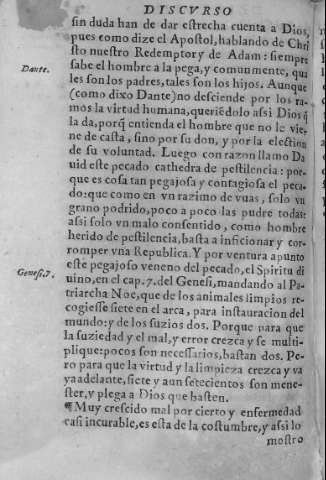 DISCVRSO
sin duda han de dar estrecha cuenta a Dios,
pues como dize el Apostol, hablando de Chri
sto nuestro Redemptor y de Adam: siempre
sabe el hombre a la pega, y comunmente, qua
Dante.
les son los padres, tales son los hijos. Aunque
(como dixo Dante) no desciende por los ra-
mos la virtud humana, queriẽdolo assi Dios q̃
la da, porq̃ entienda el hombre que no le vie-
ne de casta, sino por su don, y por la election
de su voluntad. Luego con razon llamo Da
uid este pecado cathedra de pestilencia: por-
que es cosa tan pegajosa y contagiosa el peca-
do: que como en vn razimo de vuas, solo vn
grano podrido, poco a poco las pudre todas:
assi solo vn malo consentido, como hombre
herido de pestilencia, basta a inficionar y cor-
romper vna Republica. Y por ventura apunto
este pegajoso veneno del pecado, el Spiritu di
Genes. 7.
uino, en el cap. 7. del Genesi, mandando al Pa-
triarcha Noe, que de los animales limpios re-
cogiesse siete en el arca, para instauracion del
mundo: y de los suzios dos. Porque para que
la suziedad y el mal, y error crezca y se multi-
plique: pocos son necessarios, bastan dos. Pe-
ro para que la virtud y la limpieza crezca y va
ya adelante, siete y aun setecientos son mene-
ster, y plega a Dios que basten.
¶ Muy crescido mal por cierto y enfermedad
casi incurable, es esta de la costumbre, y assi lo
mostro